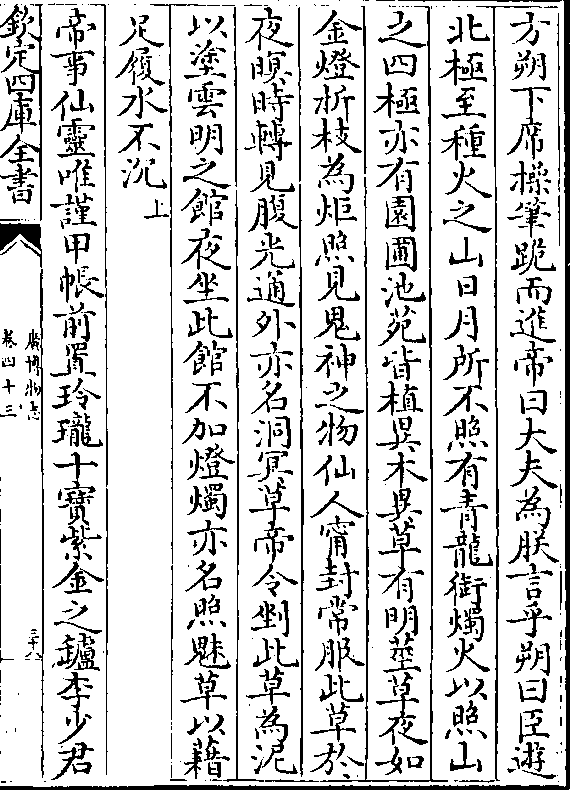 方朔下席操筆跪而進帝曰大夫為朕言乎朔曰臣遊
北極至種火之山日月所不照有青龍銜燭火以照山
之四極亦有園圃池苑皆植異木異草有明莖草夜如
金燈折枝為炬照見鬼神之物仙人甯封常服此草於
夜暝時轉見腹光通外亦名洞冥草帝令剉此草為泥
以塗雲明之館夜坐此館不加燈燭亦名照魅草以藉
足履水不沉上
帝事仙靈唯謹甲帳前置玲瓏十寶紫金之鑪李少君
欽定四庫全書
廣博物志
卷四十三
三十六